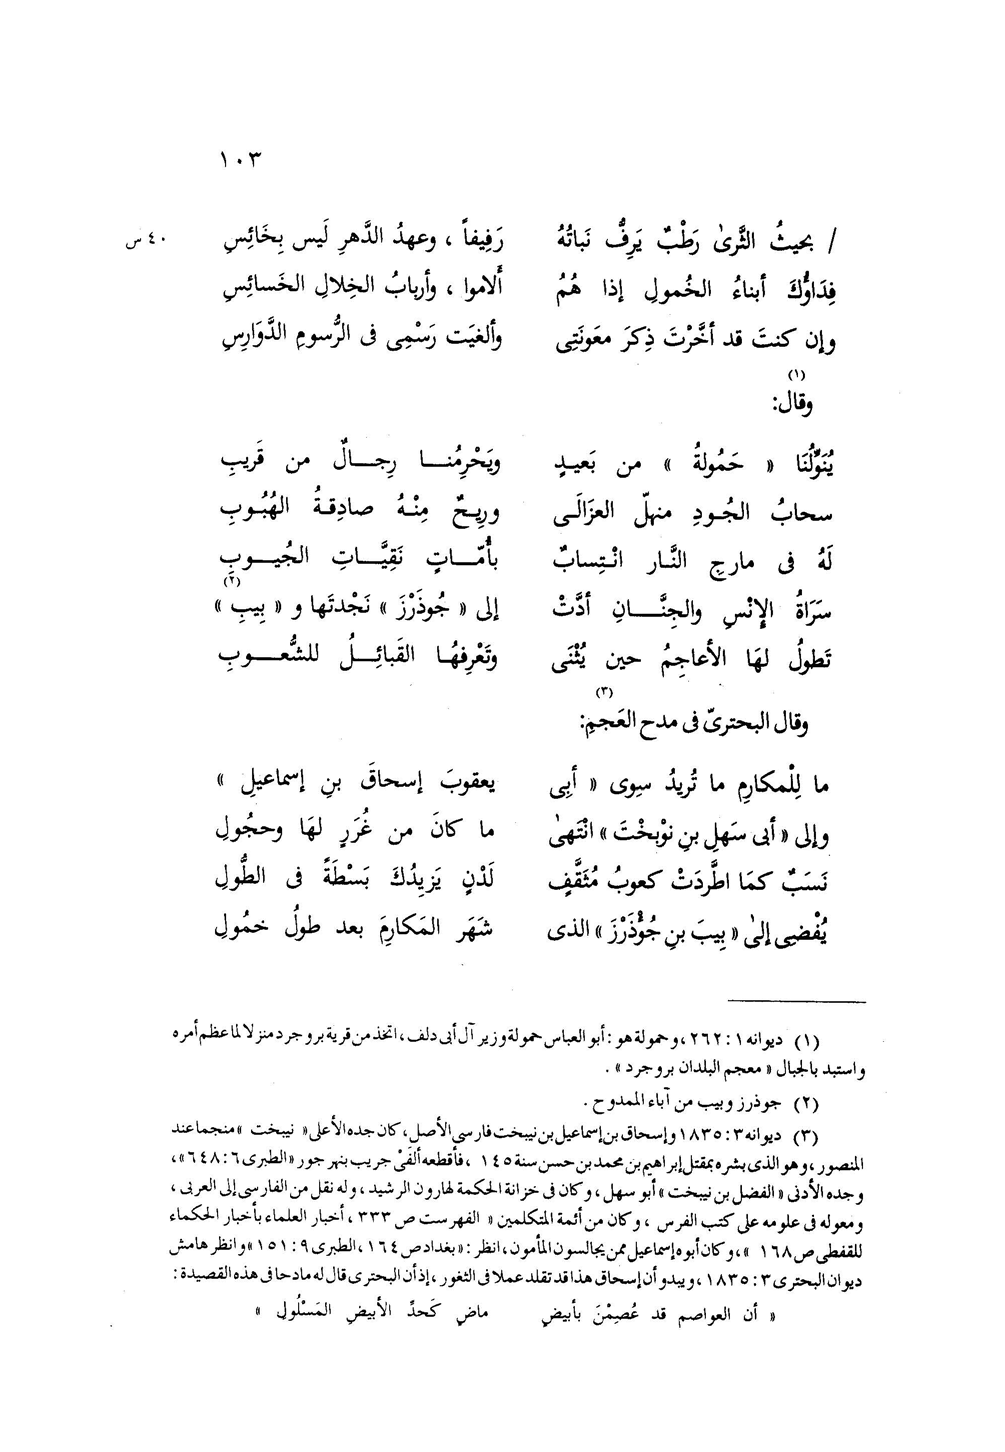 ١٠٣
/ بحيثُ الثَّرىٰ رَطْبٌ يَرِفُّ نَباتُهُ رَفِيفاً ، وعهدُ الدَّهرِ لَيس بِخَائِسِ ٤٠ س
فِدَاؤُكَ أبناءُ الخُمولِ إذا هُمُ أَلاموا ، وأربابُ الخِلالِ الخَسائِسِ
وإن كنتَ قد أخَّرْتَ ذِكرَ معَونَتِى وألغيَت رَسْمِى فى الرُّسومِ الدَّوَارِسِ
(١)
وقال:
يُنَوِّلُنَا « حَمُولةُ » من بَعيدٍ ويَحْرِمُنــا رِجــالٌ من قَريبِ
سحابُ الجُودِ منهلّ العزَالَى ورِيحٌ مِنْهُ صادِقةُ الهُبُوبِ
لَهُ فى مارجِ النَّار انْتِسابٌ بأُمّـــاتٍ نَقِيَّــاتِ الجُيــوبِ
(٢)
سَرَاةُ الإِنْسِ والجِنَّــــانِ أدَّتْ إلى « جُوذَرْزَ » نَجْدتَها و « بِيبِ »
تَطولُ لهَا الأعاجِمُ حين يُثْنَى وتَعْرِفهُا القَبائِلُ للشُّعـــوبِ
(٣)
وقال البحترىّ فى مدح العَجمِ:
ما لِلْمكارِمِ ما تُريدُ سِوى « أبِى يعقوبَ إسحاقَ بنِ إسماعيلِ »
وإلى « أبى سَهلِ بنِ نوْبخْتَ » انْتَهىٰ ما كانَ من غُرَرٍ لهَا وحجُولِ
نَسَبٌ كمَا اطَّردَتْ كعوبُ مُثقَّفٍ لَدْنٍ يَزيدُكَ بَسْطَةً فى الطُّولِ
يُفْضِى إلىٰ « بِيبَ بنِ جُؤْذَرْزَ » الذى شَهَر المَكارِمَ بعد طولُ خمُولِ
(١) ديوانه ١ : ٢٦٢ ، وحمولة هو : أبو العباس حمولة وزير آل أبى دلف ، اتخذ من قرية بروجرد منزلا لما عظم أمره
واستبد بالجبال « معجم البلدان بروجرد » .
(٢) جوذرز وبيب من آباء الممدوح .
(٣) ديوانه ٣ : ١٨٣٥ وإسحاق بن إسماعيل بن نيبخت فارسى الأصل ، كان جده الأعلى « نيبخت » منجما عند
المنصور ، وهو الذى بشره بمقتل إبراهيم بن محمد بن حسن سنة ١٤٥ ، فأقطعه ألفَىْ جريب بنهر جور « الطبرى ٦ : ٦٤٨ » ،
وجده الأدنى « الفضل بن نيبخت » أبو سهل ، وكان فى خزانة الحكمة لهارون الرشيد ، وله نقل من الفارسى إلى العربى ،
ومعوله فى علومه على كتب الفرس ، وكان من أئمة المتكلمين « الفهرست ص ٣٣٣ ، أخبار العلماء بأخبار الحكماء
للقفطى ص ١٦٨ » ، وكان أبوه إسماعيل ممن يجالسون المأمون ، انظر : « بغداد ص ١٦٤ ، الطبرى ٩ : ١٥١ » وانظر هامش
ديوان البحترى ٣ : ١٨٣٥ ، ويبدو أن إسحاق هذا قد تقلد عملا فى الثغور ، إذ أن البحترى قال له مادحا فى هذه القصيدة :
« أن العواصم قد عُصِمْنَ بأبيضٍ ماضٍ كَحدِّ الأبيضِ المَسْلُولِ »